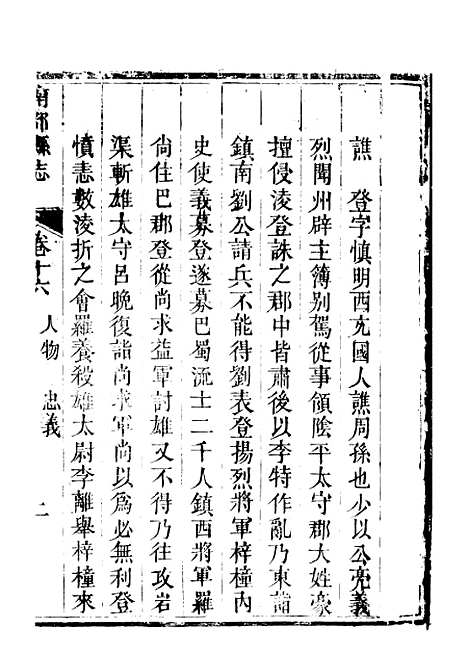 譙登字慎明西充國人譙周孫也少以公亮義
烈聞州辟主簿别駕從事領陰平太守郡大姓豪
擅侵淩登誅之郡中皆肅後以李特作亂乃東詣
鎮南劉公請兵不能得劉表登揚烈將軍梓橦內
史使義募登遂募巴蜀流士二千人鎮西將軍羅
尚住巴郡登從尚求益軍討雄又不得乃往攻宕
渠斬雄太守呂晚復詣尚求軍尚以爲必無利登
憤恚數淩折之會羅羕殺雄太尉李離舉梓橦來
南部縣志 卷十六 人物 忠義 二